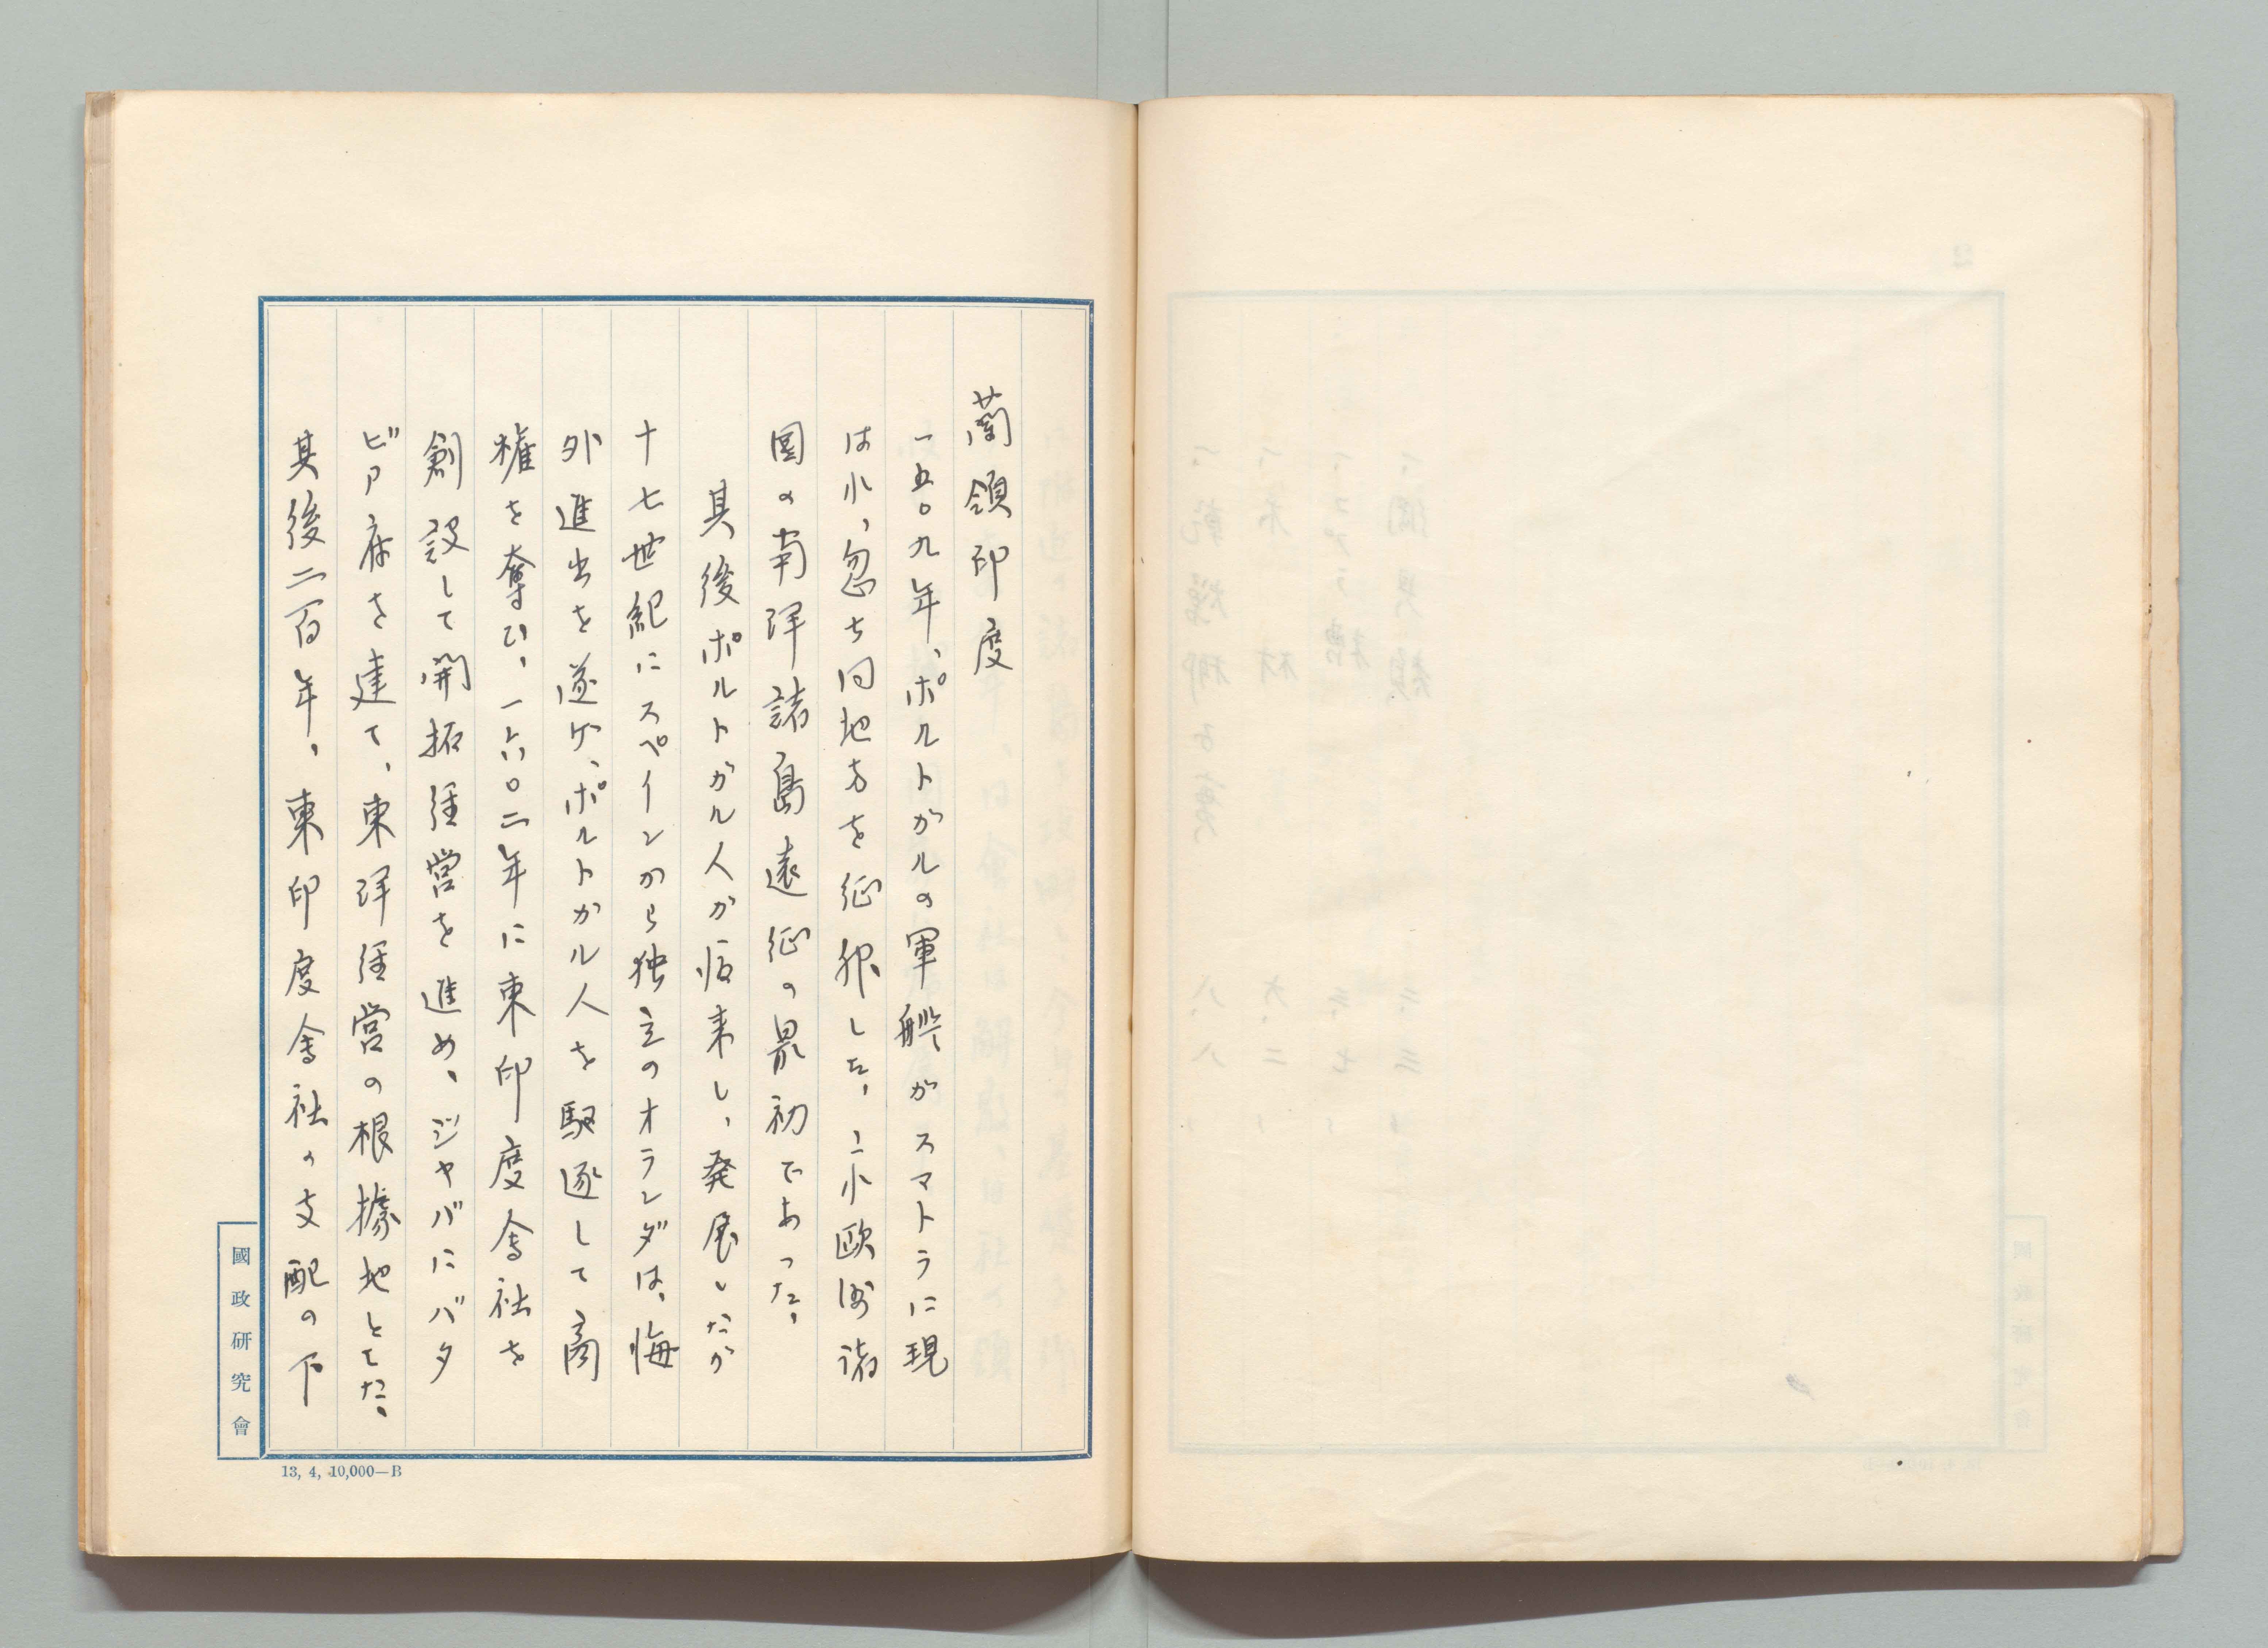 蘭領印度
一五〇九年、ポルトガルの軍艦がスマトラに現
は小、忽ち同地方を征服した、こ小欧洲諸
国の南洋諸島遠征の最初であった、
其後ポルトガル人が渡来し、発展したが
十七世紀にスペインから独立のオランダは、海
外進出を遂げ、ポルトガル人を駆逐して商
権を奪ひ、一六〇二年に東印度会社を
創設して開拓経営を進め、ジャバにバタ
ビア府を建て、東洋経営の根據地とした、
其後二百年、東印度会社の支配の下
國政研究會
13, 4, 10,000—B